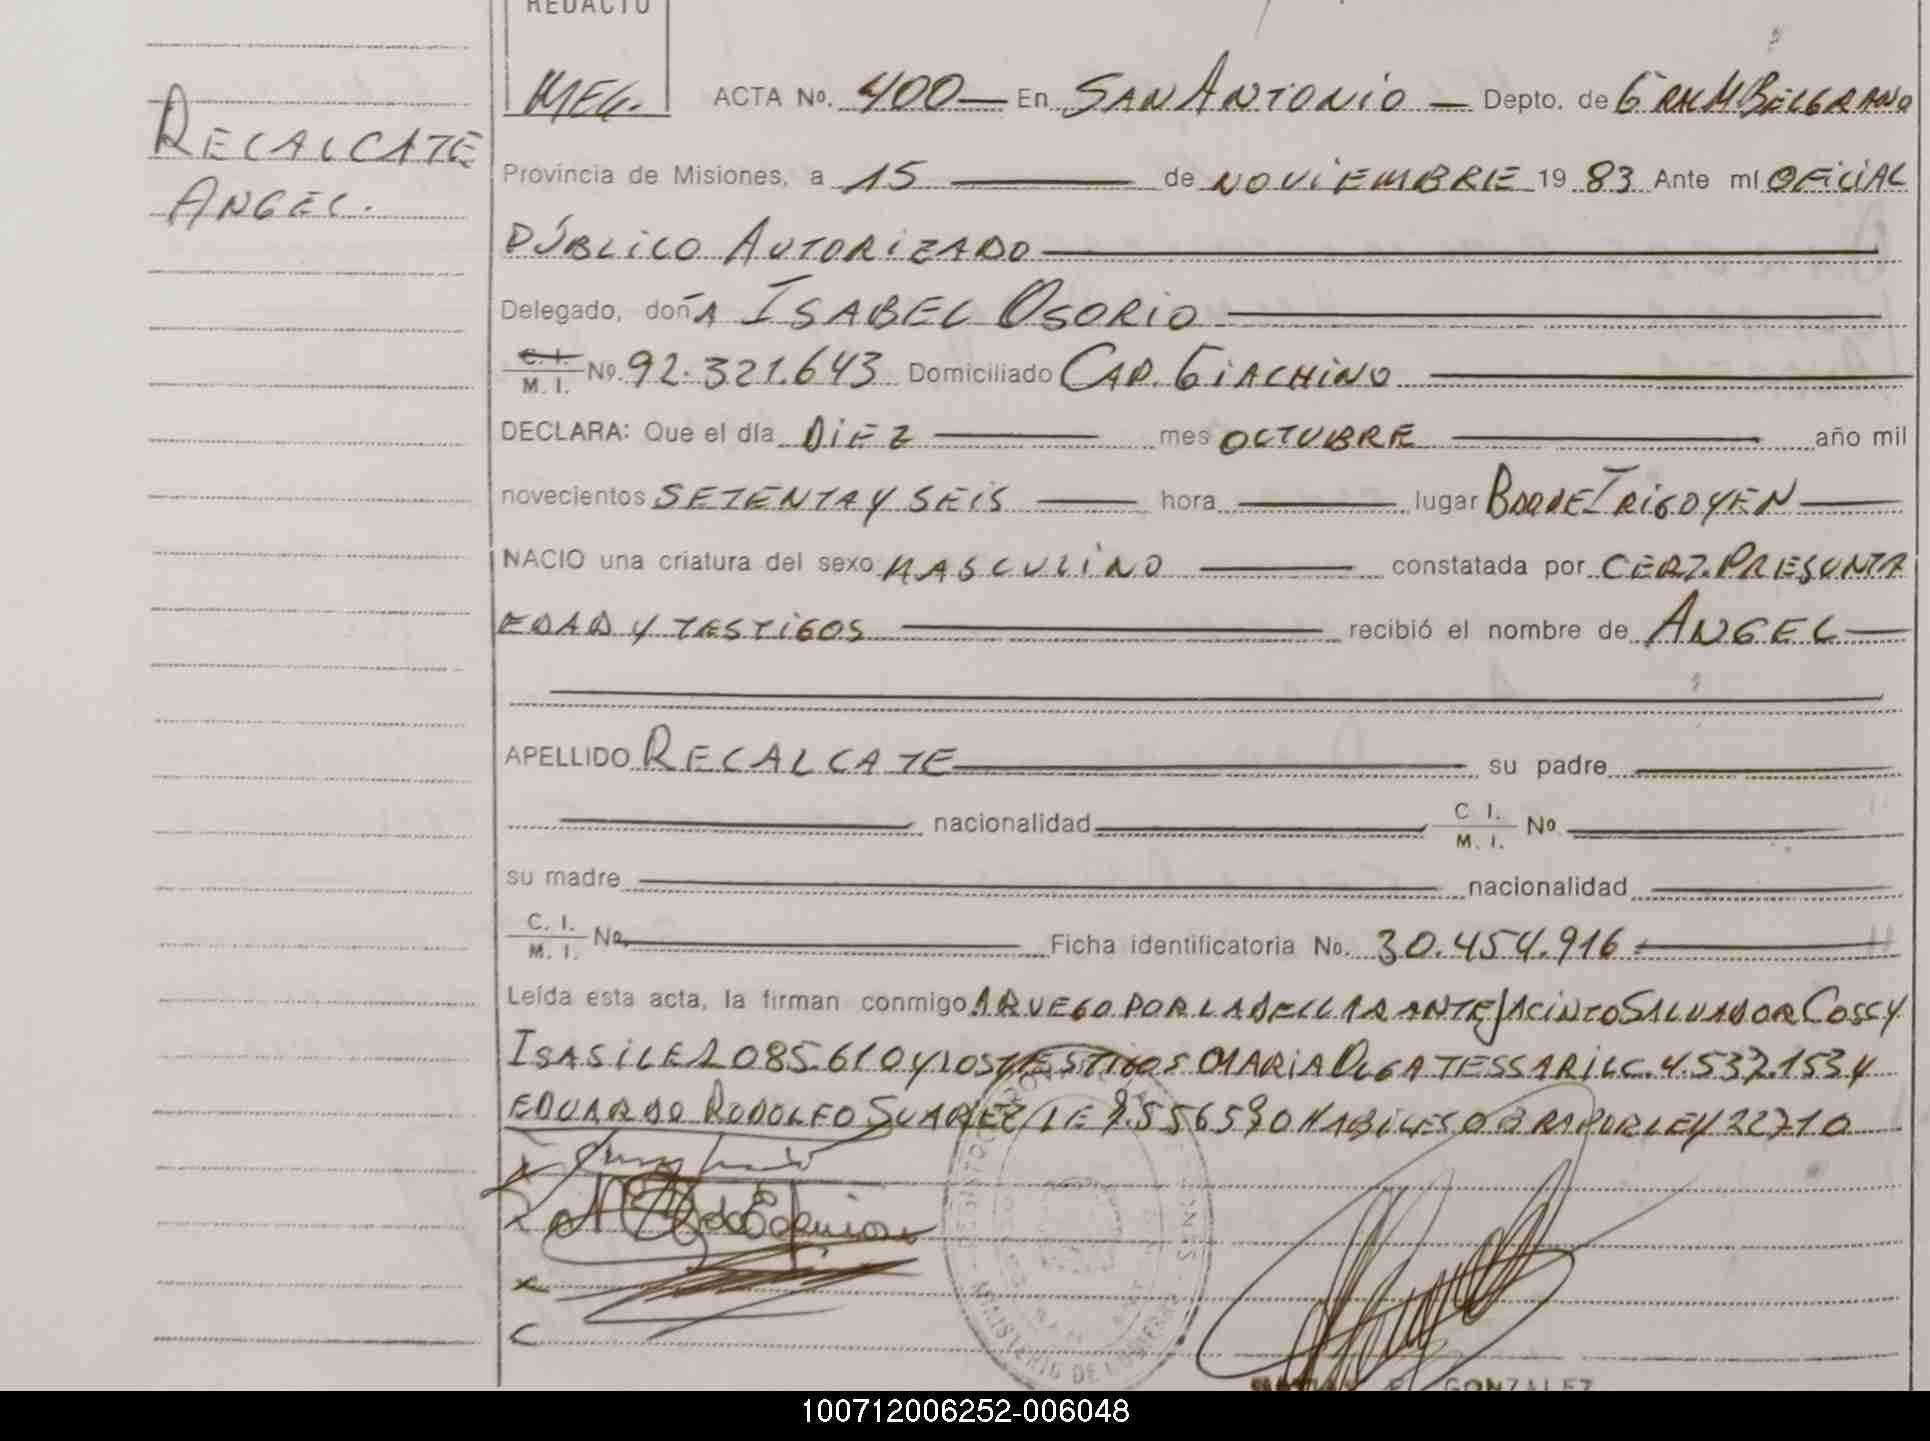 REDACTO
MEG.
RECALCATE
ANGEL.
ACTA No. 400 En SAN ANTONIO Depto. de GRAL M BELGRANO
Provincia de Misiones, a 15 de NOVIEMBRE 19 83 Ante mí OFICIAL
PÚBLICO AUTORIZADO
Delegado, doñA ISABEL OSORIO
C. I. / M. I. No. 92.321.643 Domiciliado CAP. GIACHINO
DECLARA: Que el día DIEZ mes OCTUBRE año mil
novecientos SETENTA Y SEIS hora lugar BDO DE IRIGOYEN
NACIO una criatura del sexo MASCULINO constatada por CERT. PRESUNTA
EDAD Y TESTIGOS recibió el nombre de ANGEL
APELLIDO RECALCATE su padre
nacionalidad C I. / M. I. No
su madre nacionalidad
C. I. / M. I. No. Ficha identificatoria No. 30.454.916
Leída esta acta, la firman conmigo A RUEGO POR LA DECLARANTE JACINTO SALVADOR COSSY
ISASI LE 2085.610 Y LOS TESTIGOS MARIA OLGA TESSARI LC. 4.537.153 Y
EDUARDO RODOLFO SUAREZ LE HABILES OBRA POR LEY 22710
MINISTERIO DE GOBIERNO
GONZALEZ
100712006252-006048